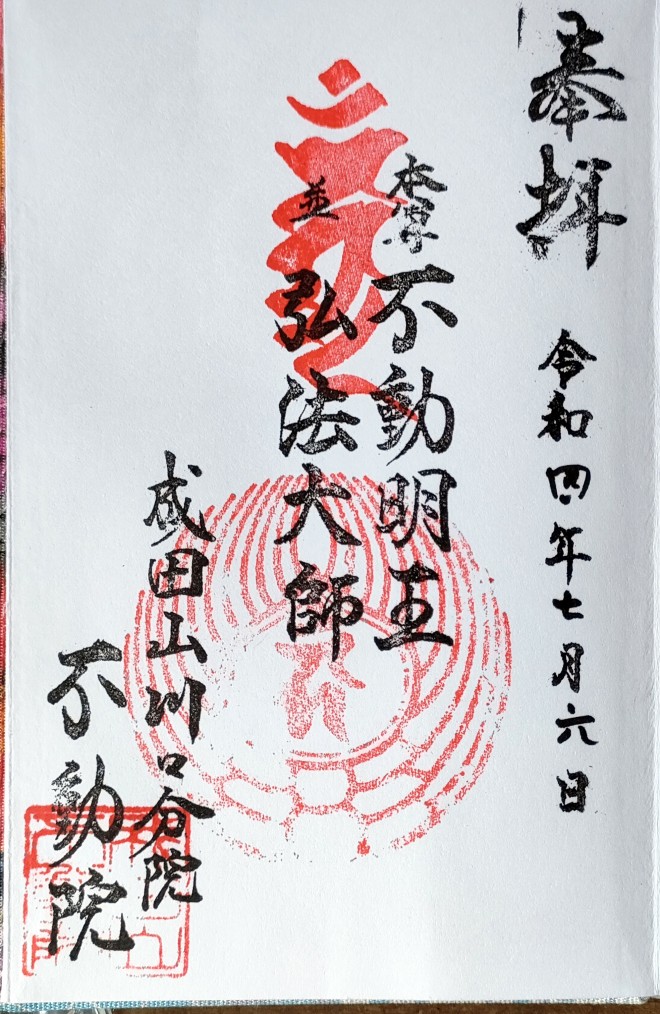 奉拝
令和四年七月六日
本尊
不動明王
並
弘法大師
成田山川口分院
不動院